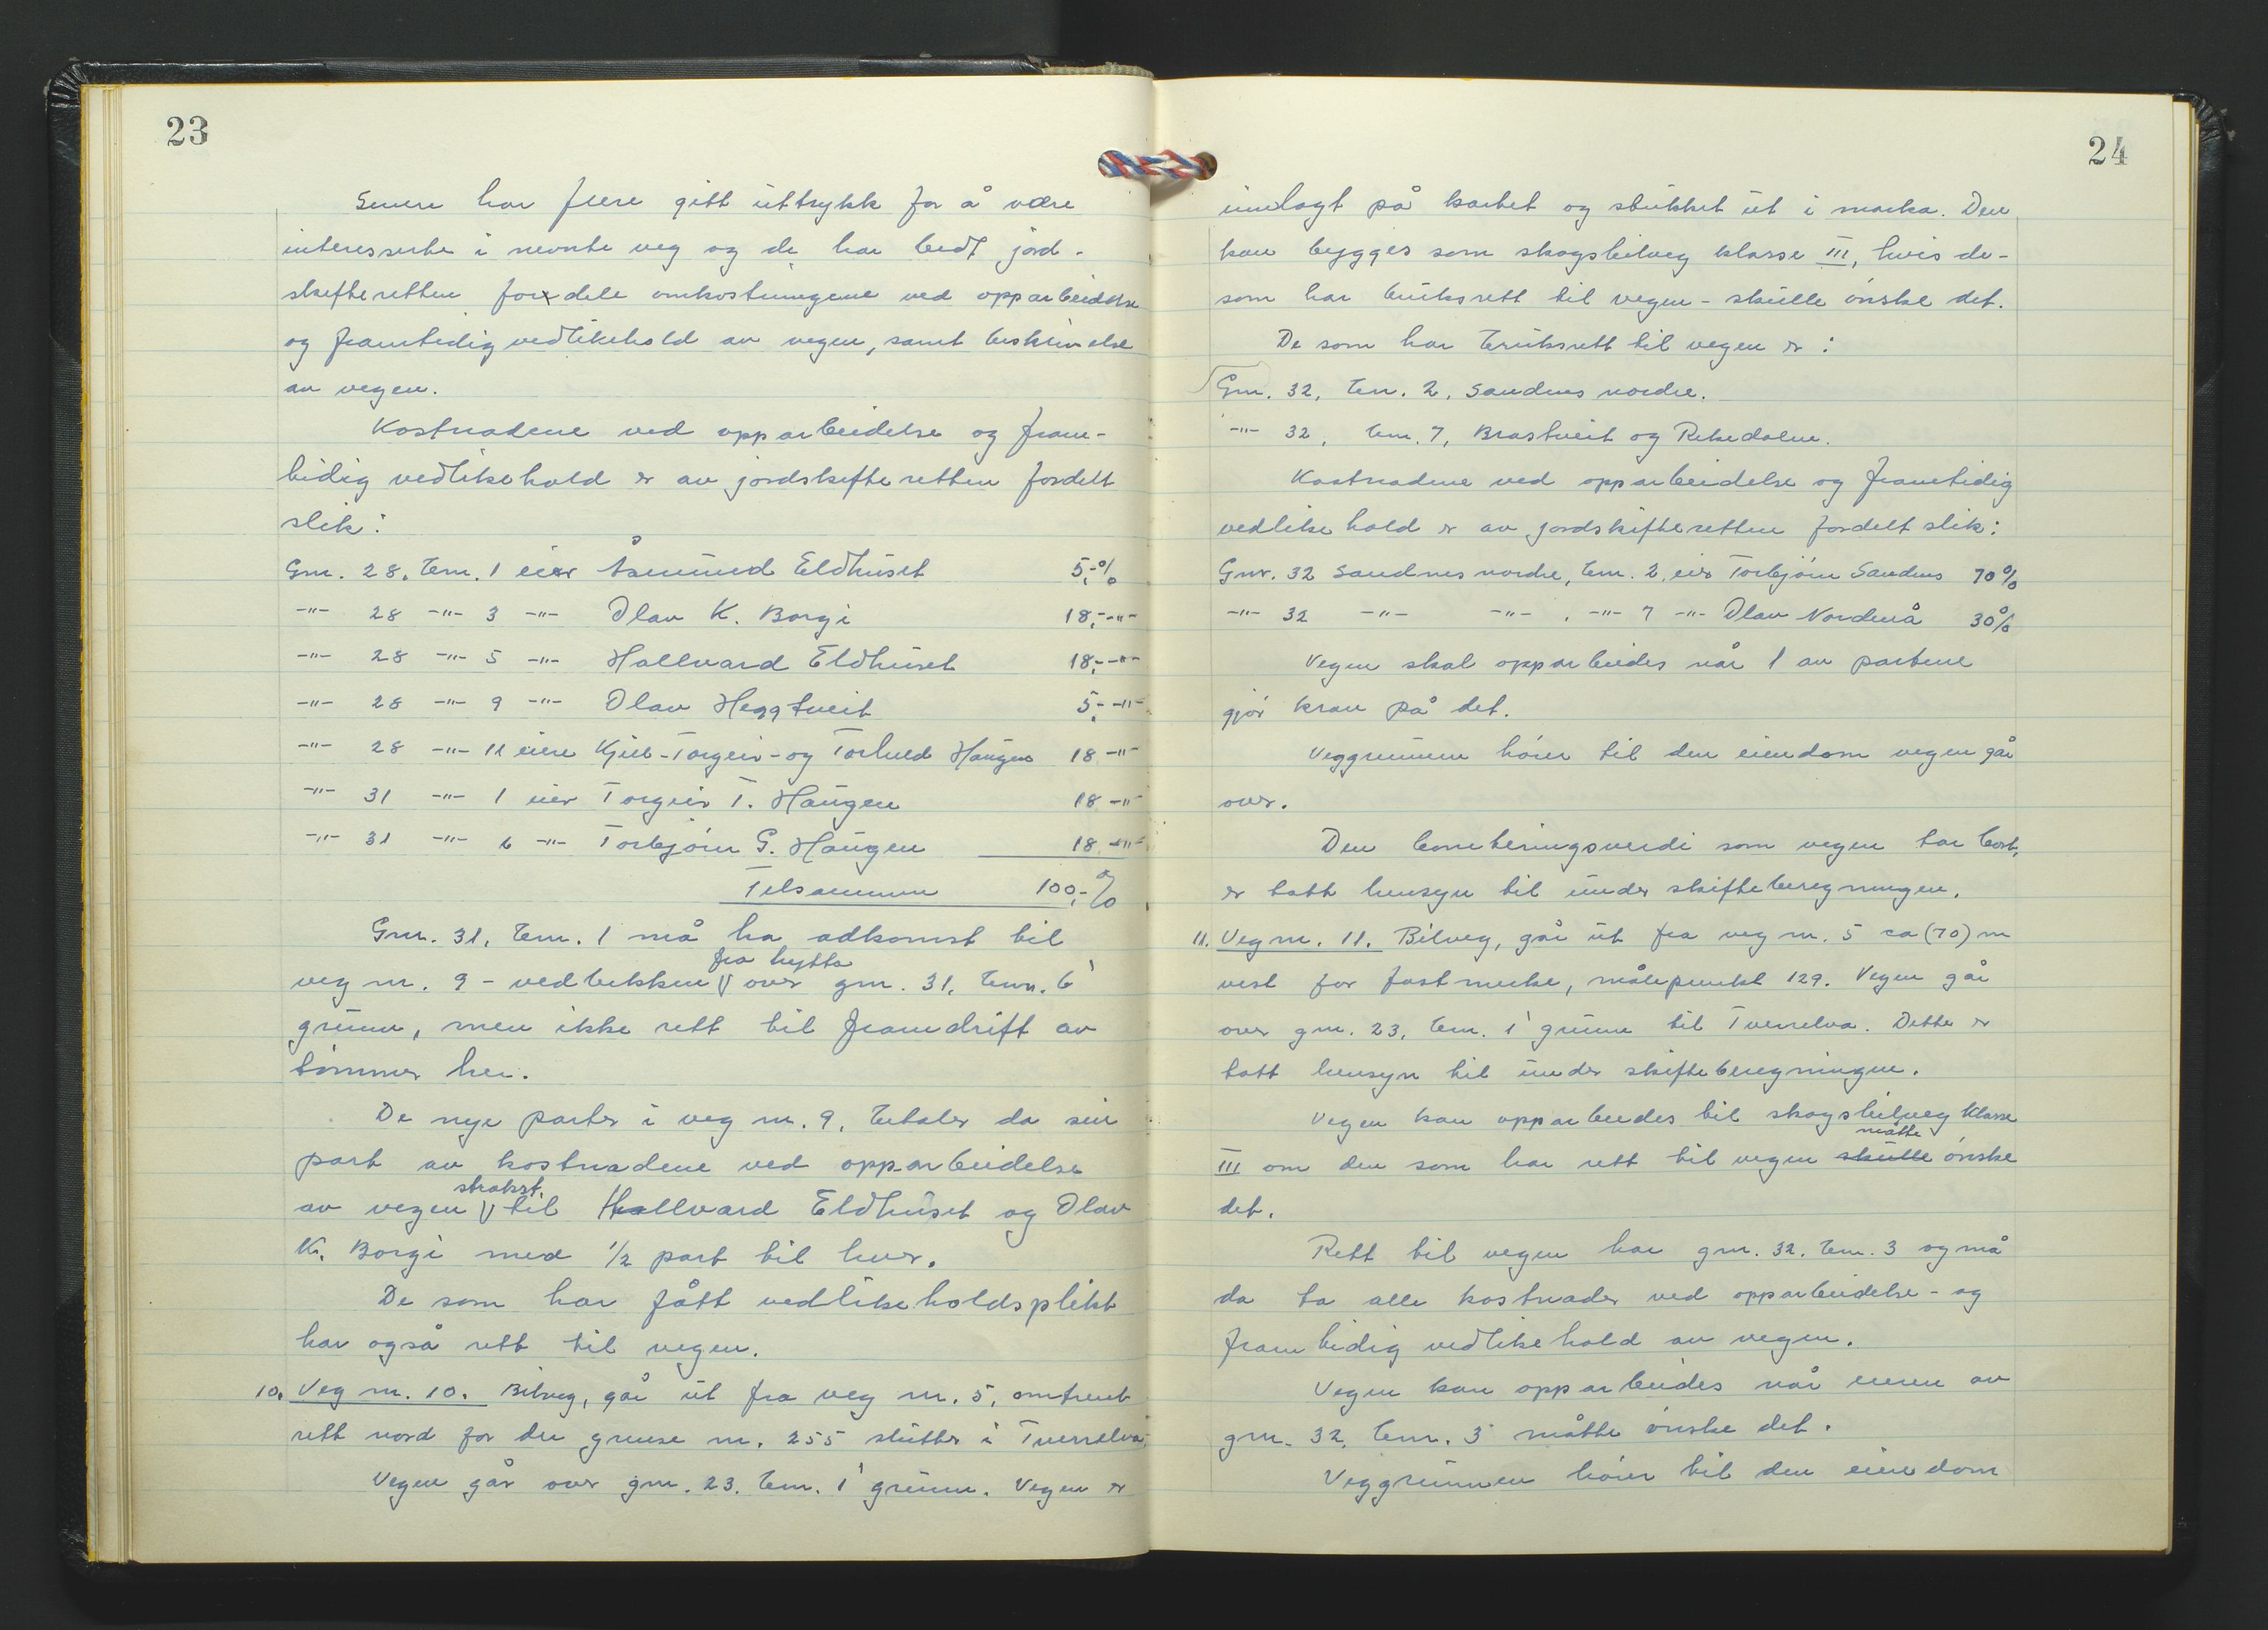 23
Senere har flere gitt uttrykk for å være
interesserte i nevnte veg og de har bedt jord-
skifteretten fordele omkostningene ved opparbeidelse
og framtidig vedlikehold av vegen, samt beskrivelse
av vegen.
Kostnadene ved opparbeidelse og fram-
tidig vedlikehold er av jordskifteretten fordelt
slik:
Gnr. 28, bnr. 1 eier Åsmund Eldhuset 5,-%
-"- 28 -"- 3 -"- Olav K. Borgi 18,- -"-
-"- 28 -"- 5 -"- Hallvard Eldhuset 18,- -"-
-"- 28 -"- 9 -"- Olav Heggtveit 5,- -"-
-"- 28 -"- 11 eiere Kjell-Torgeir- og Torhild Haugen 18 -"-
-"- 31 -"- 1 eier Torgeir T. Haugen 18 -"-
-"- 31 -"- 6 -"- Torbjörn G. Haugen 18 -"-
Tilsammen 100,-%
Gnr. 31, bnr. 1 må ha adkomst til
veg nr. 9 - ved bekken fra hytta over gnr. 31, bnr. 6'
grunn, men ikke rett til framdrift av
tömmer her.
De nye parter i veg nr. 9, betaler da sin
part av kostnadene ved opparbeidelse
av vegen strakst. til Hallvard Eldhuset og Olav
K. Borgi med 1/2 part til hver.
De som har fått vedlikeholdsplikt
har også rett til vegen.
10. Veg nr. 10. Bilveg, går ut fra veg nr. 5, omtrent
rett nord for der grense nr. 255 slutter i Tverrelva.
Vegen går over gnr. 23, bnr. 1' grunn. Vegen er
24
innlagt på kartet og stukket ut i marka. Den
kan bygges som skogsbilveg klasse III, hvis de-
som har bruksrett til vegen - skulle önske det.
De som har bruksrett til vegen er:
Gnr. 32, bnr. 2, Sandnes nordre.
-"- 32, bnr. 7, Brastveit og Rekedalen.
Kostnadene ved opparbeidelse og framtidig
vedlikehold er av jordskifteretten fordelt slik:
Gnr. 32 Sandnes nordre, bnr. 2, eier Torbjörn Sandnes 70%
-"- 32 -"- -"- , -"- 7 -"- Olav Nordenå 30%
Vegen skal opparbeides når 1 av partene
gjör krav på det.
Veggrunnen hörer til den eiendom vegen går
over.
Den boniteringsverdi som vegen tar bort,
er tatt hensyn til under skifteberegningen.
11. Veg nr. 11. Bilveg, går ut fra veg nr. 5 ca (70) m
vest for fastmerke, målepunkt 129. Vegen går
over gnr. 23, bnr. 1' grunn til Tverrelva. Dette er
tatt hensyn til under skifteberegningen.
Vegen kan opparbeides til skogsbilveg klasse
III om den som har rett til vegen skulle måtte önske
det.
Rett til vegen har gnr. 32, bnr. 3 og må
da ta alle kostnader ved opparbeidelse - og
framtidig vedlikehold av vegen.
Vegen kan opparbeides når eieren av
gnr. 32, bnr. 3 måtte önske det.
Veggrunnen hörer til den eiendom